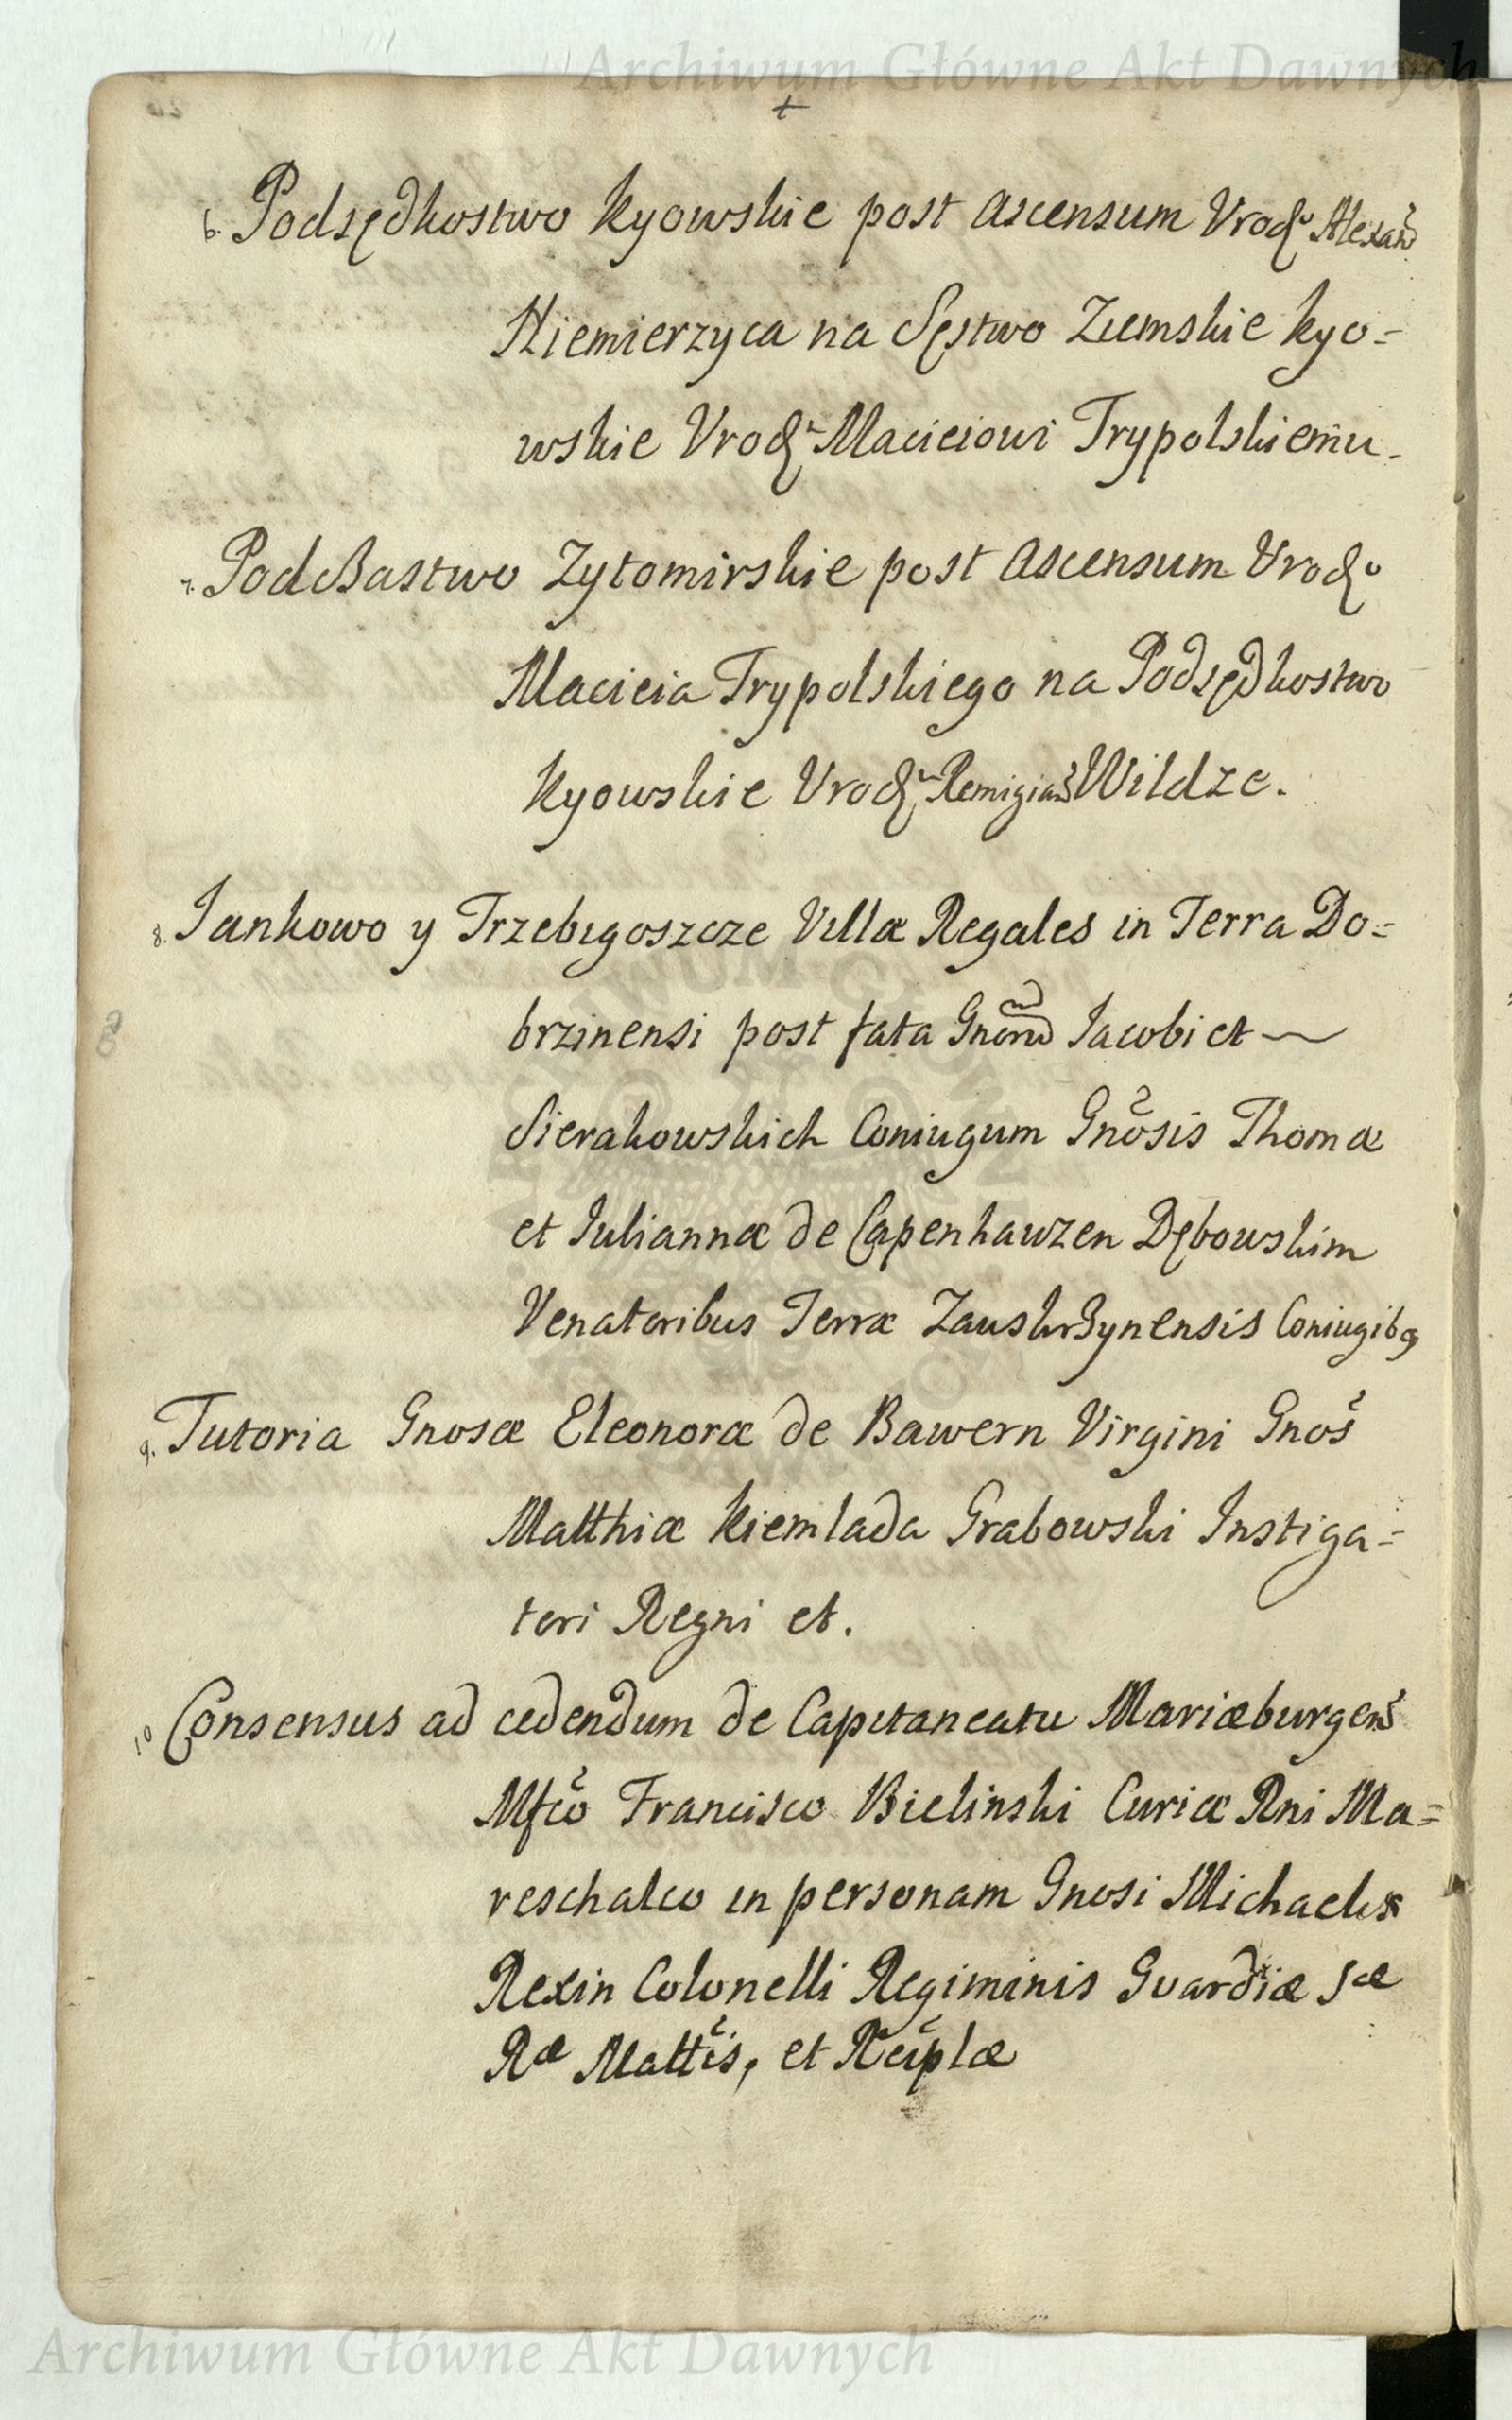 Archiwum Główne Akt Dawnych
6. Podsędkostwo Kyowskie post ascensum Urodº Alexañ
Niemierzyca na Sęstwo Ziemskie Kyo=
wskie Urod Macieiowi Trypolskiemu.
7. Podczastwo Zytomirskie post ascensum Urodº
Macieia Trypolskiego na Podsędkostwo
Kyowskie Urod Wildze.
8. Jankowo y Trzebigoszcze Villæ Regales in Terra Do=
brzinensi post fata Jacobi et —
Sierakowskich Coniugum Gnõsis Thomæ
et Juliannæ de Capenhauzen Dębowskim
Venatoribus Terræ Zauskrzynensis Coniugibꝫ
9. Tutoria Gnosæ Eleonoræ de Bawern Virgini Gnos̃
Matthiæ Kiemlada Grabowski Instiga=
tori Regni et.
10 Consensus ad cedendum de Capitaneatu Mariæburgens̃
Mfcõ Francisco Bielinski Curiæ Rni Ma=
reschalco in personam Gnosi Michaelis
Rexin Colonelli Regiminis Guardiæ Sæ
Ræ Mattis̃, et Reiplæ
Archiwum Główne Akt Dawnych